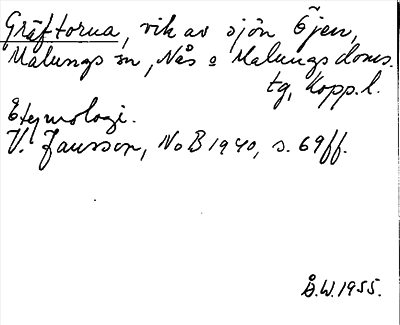 Gräftorna, vik av sjön Öjen,
Malungs sn, Nås o Malungs doms.
tg, Kopp. l.
Etymologi.
V. Jansson, NoB 1940, s. 69 ff.
Å.W. 1955.